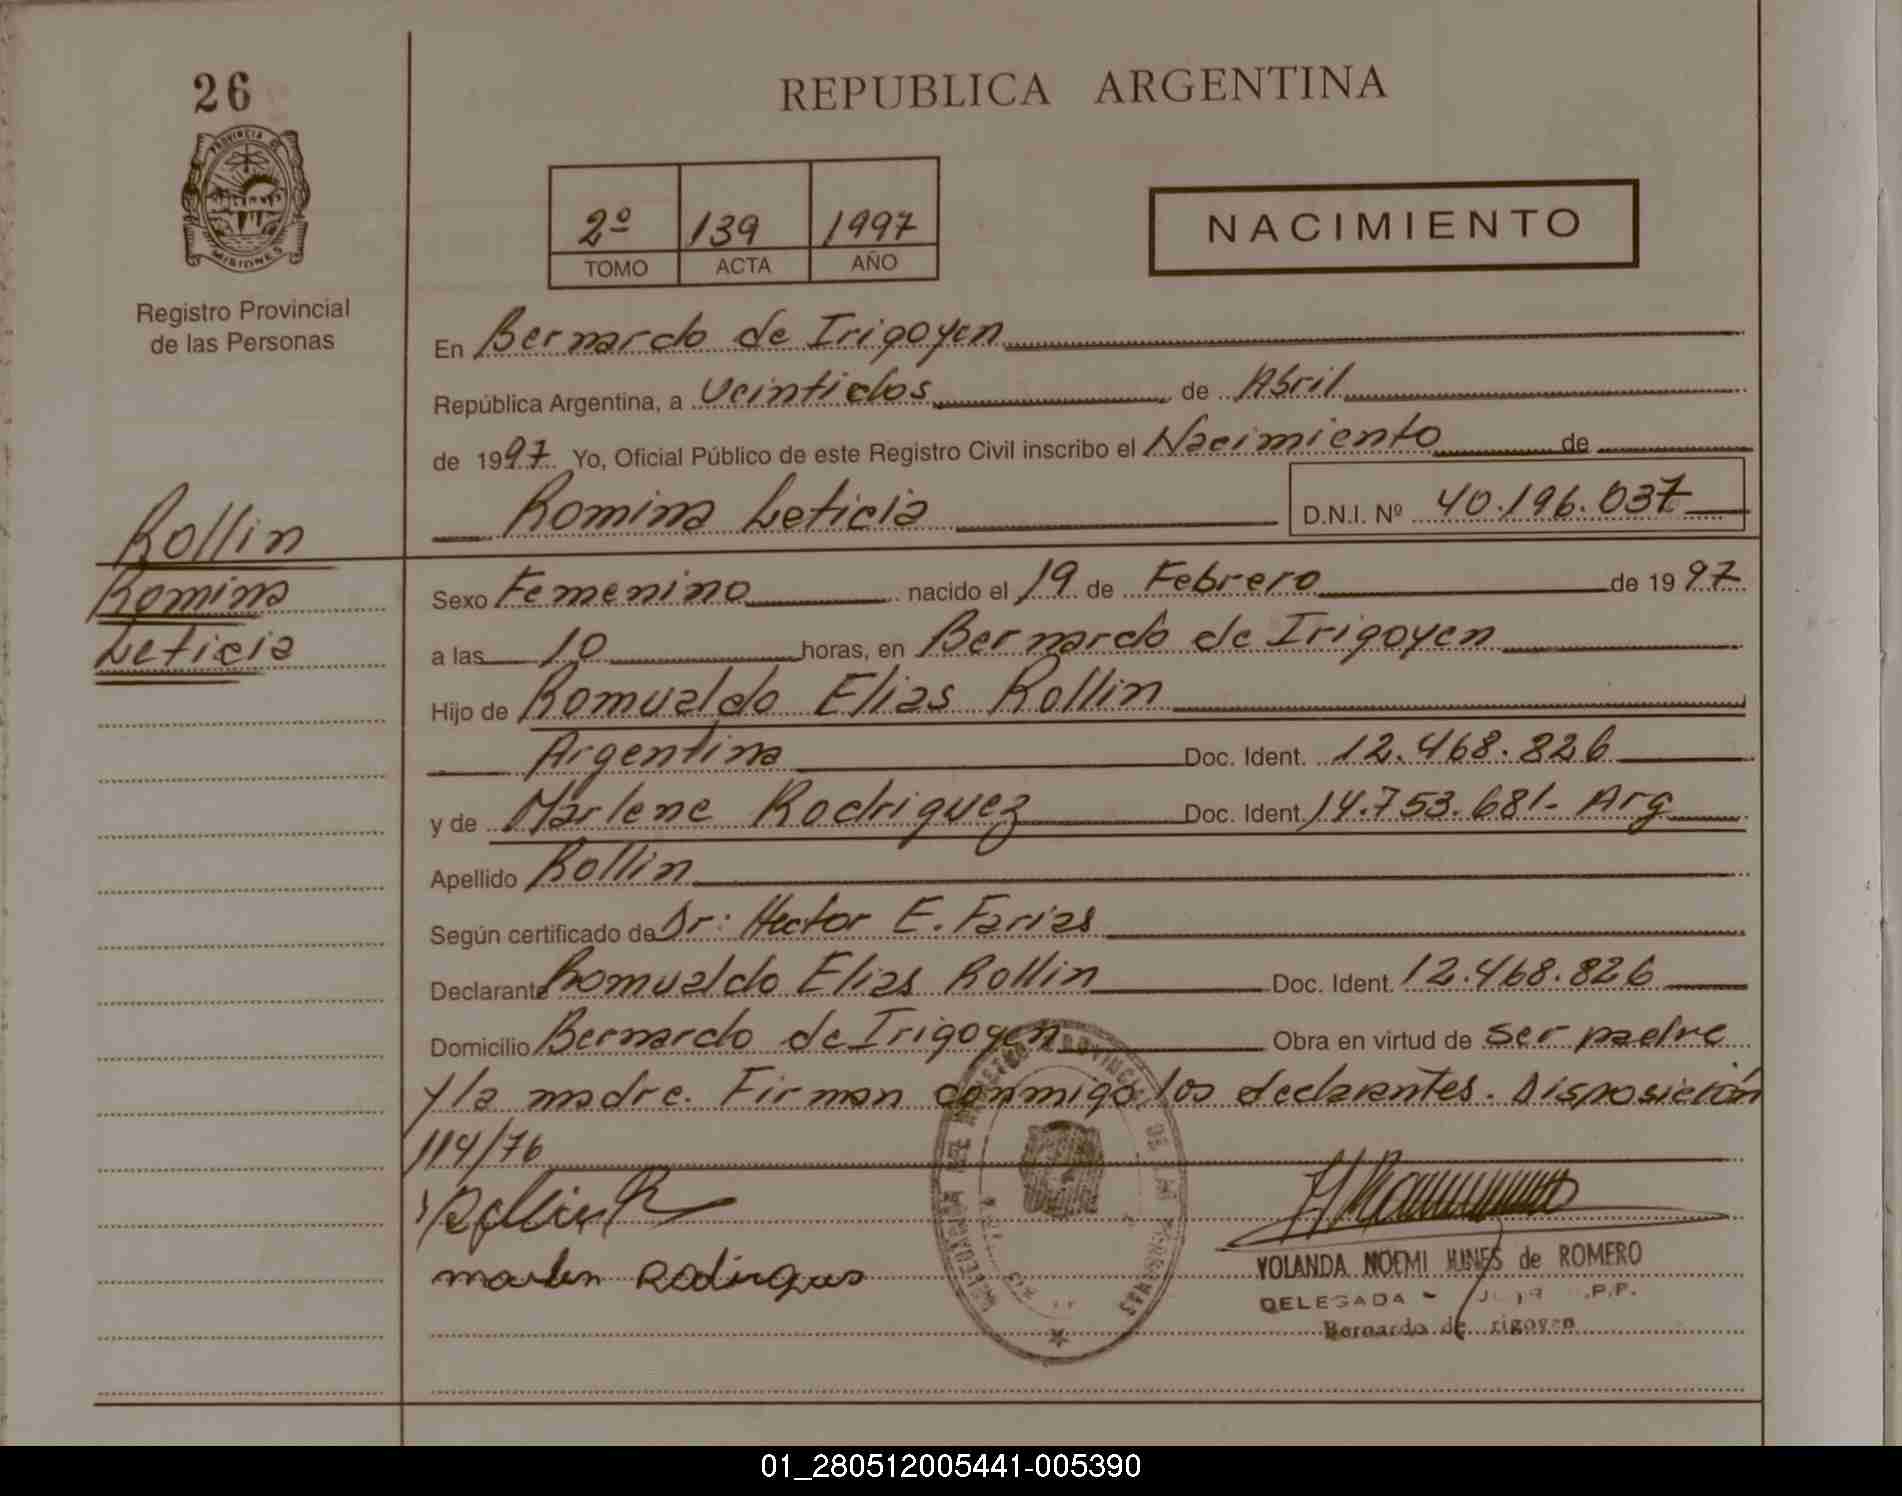 26
PROVINCIA DE
MISIONES
Registro Provincial
de las Personas
Rollin
Romina
Leticia
REPUBLICA ARGENTINA
2º 139 1997
TOMO ACTA AÑO
NACIMIENTO
En Bernardo de Irigoyen
República Argentina, a veintidos de Abril
de 1997 Yo, Oficial Público de este Registro Civil inscribo el Nacimiento de
Romina Leticia D.N.I. Nº 40.196.037
Sexo Femenino nacido el 19 de Febrero de 1997
a las 10 horas, en Bernardo de Irigoyen
Hijo de Romualdo Elias Rollin
Argentina Doc. Ident. 12.468.826
y de Marlene Rodriguez Doc. Ident. 14.753.681- Arg
Apellido Rollin
Según certificado de Dr: Hector E. Farias
Declarante Romualdo Elias Rollin Doc. Ident. 12.468.826
Domicilio Bernardo de Irigoyen Obra en virtud de ser padre
y la madre. Firman conmigo los declarantes. Disposición
114/76
YOLANDA NOEMI de ROMERO
DELEGADA
Bernardo de
01_280512005441-005390